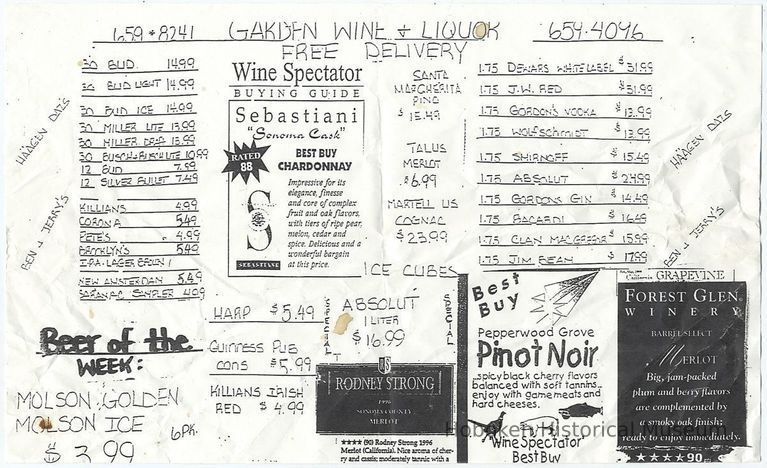 659-8241 GARDEN WINE + LIQUOR 659-4096
FREE DELIVERY
30 BUD 14.99
30 BUD LIGHT 14.99
30 BUD ICE 14.99
30 MILLER LITE 13.99
30 MILLER DRAF 13.99
30 BUSCH + BUSCH LITE 10.99
12 BUD 7.99
12 SILVER BULLET 7.49
KILLIANS 4.99
CORONA 5.49
PETE'S 4.99
BROOKLYN'S 5.49
I.P.A. LAGER BROWN
NEW AMSTERDAM 5.49
SARANAC SAMPLER 4.09
HÄAGEN DAZS
BEN + JERRY'S
Wine Spectator
BUYING GUIDE
Sebastiani
"Sonoma Cask"
RATED
88
BEST BUY
CHARDONNAY
Impressive for its
elegance, finesse
and core of complex
fruit and oak flavors,
with tiers of ripe pear,
melon, cedar and
spice. Delicious and a
wonderful bargain
at this price.
S
SEBASTIANI
SANTA
MARGHERITA
PINO
$15.49
TALUS
MERLOT
$6.99
MARTELL US
COGNAC
$23.99
ICE CUBES
1.75 DEWARS WHITE LABEL $31.99
1.75 J.W. RED $31.99
1.75 GORDON'S VODKA $13.99
1.75 WOLFSCHMIDT $13.99
1.75 SMIRNOFF $15.49
1.75 ABSOLUT $24.99
1.75 GORDONS GIN $14.49
1.75 BACARDI $16.49
1.75 CLAN MACGREGOR $15.99
1.75 JIM BEAM $17.99
HÄAGEN DAZS
BEN + JERRY'S
Beer of the
WEEK:
MOLSON GOLDEN
MOLSON ICE
6 PK.
$3.99
HARP $5.49
GUINNESS PUB
CANS $5.99
KILLIANS IRISH
RED $4.99
SPECIAL
ABSOLUT
1 LITER
$16.99
SPECIAL
RODNEY STRONG
1996
SONOMA COUNTY
MERLOT
★★★★ (90) Rodney Strong 1996
Merlot (California). Nice aroma of cher-
ry and cassis; moderately tannic with a
Best
Buy
Pepperwood Grove
Pinot Noir
...spicy black cherry flavors
balanced with soft tannins...
enjoy with game meats and
hard cheeses.
"Wine Spectator"
Best Buy
GRAPEVINE
FOREST GLEN
WINERY
BARREL SELECT
MERLOT
Big, jam-packed
plum and berry flavors
are complemented by
a smoky oak finish;
ready to enjoy immediately.
★★★★ 90
Hoboken Historical Museum